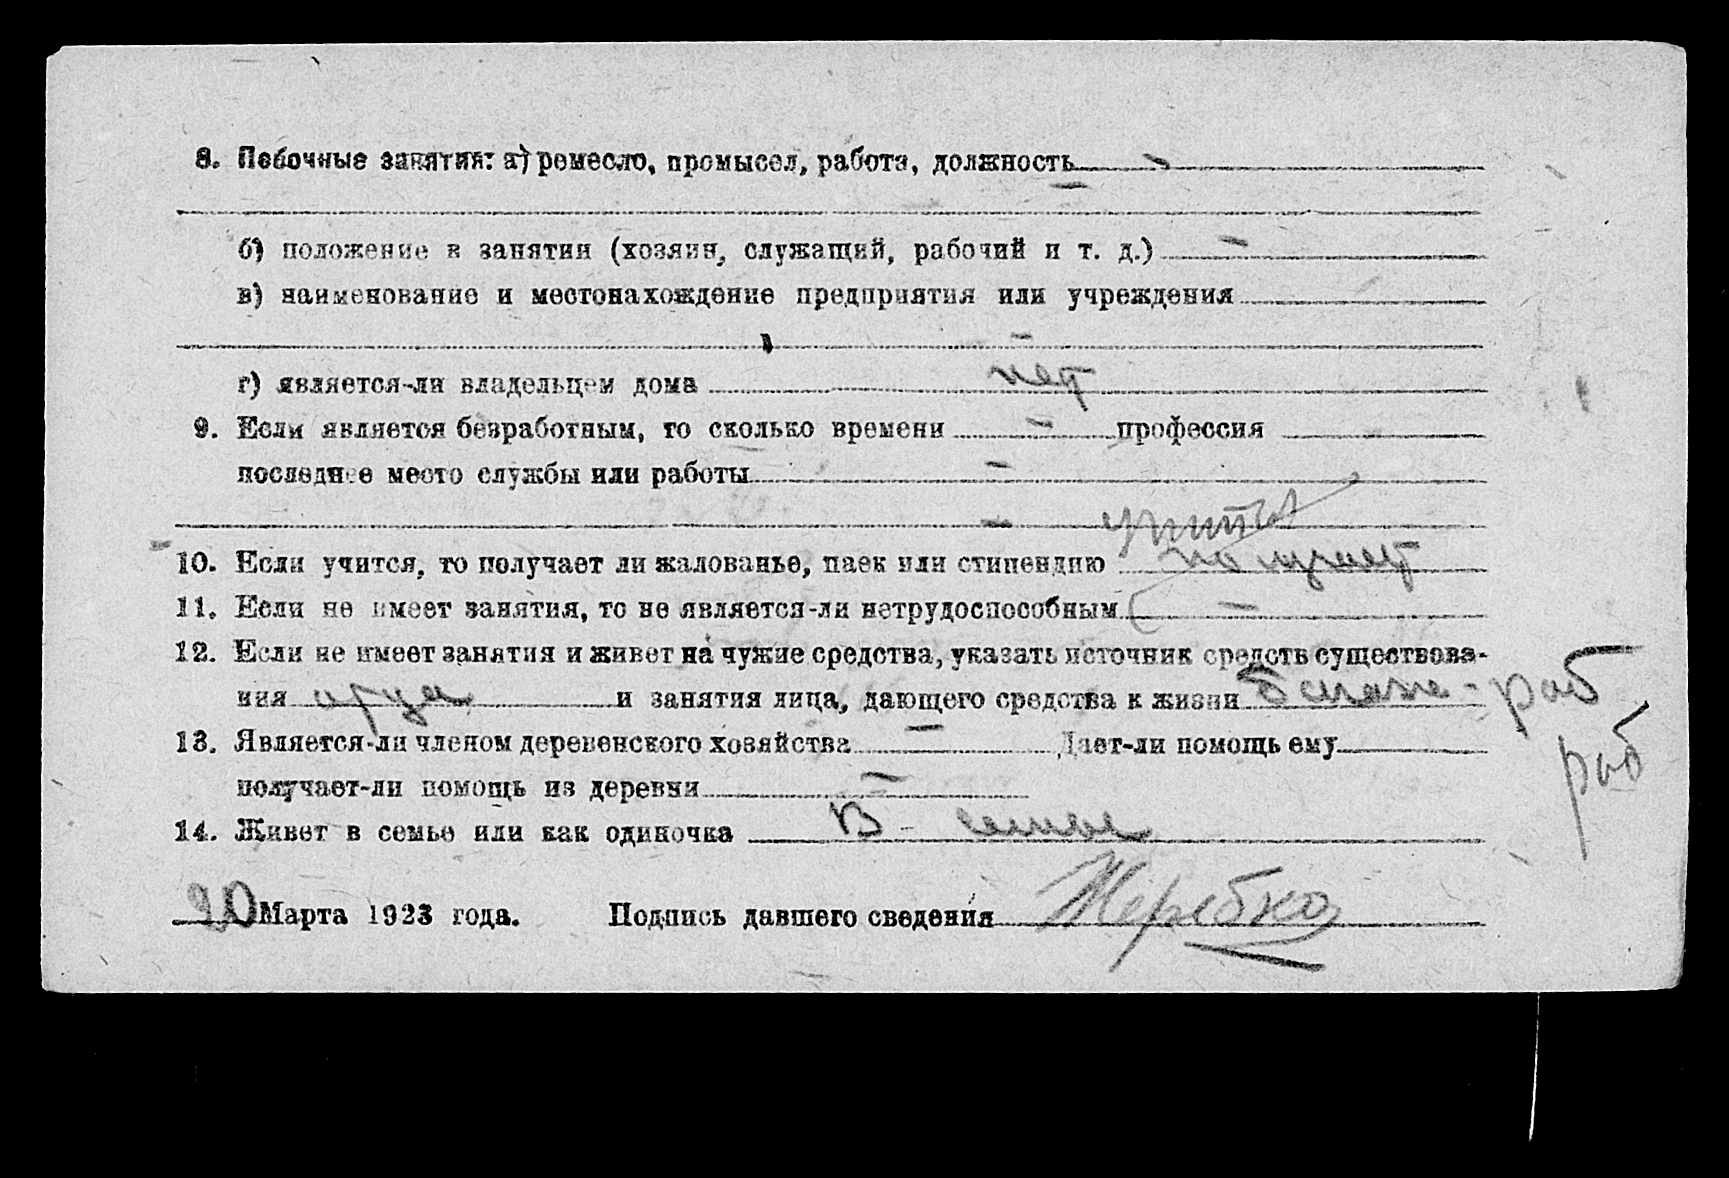 8. Побочные занятия: а) ремесло, промысел, работа, должность —
б) положение в занятии (хозяин, служащий, рабочий и т. д.) —
в) наименование и местонахождение предприятия или учреждения
—
г) является-ли владельцем дома нет
9. Если является безработным, то сколько времени — профессия
последнее место службы или работы —
—
10. Если учится, то получает ли жалованье, паек или стипендию
11. Если не имеет занятия, то не является-ли нетрудоспособным —
12. Если не имеет занятия и живет на чужие средства, указать источник средств существова-
ния отца и занятия лица, дающего средства к жизни раб
13. Является-ли членом деревенского хозяйства — Дает-ли помощь ему
раб
получает-ли помощь из деревни —
14. Живет в семье или как одиночка В - семье
20 Марта 1923 года. Подпись давшего сведения Жеребко